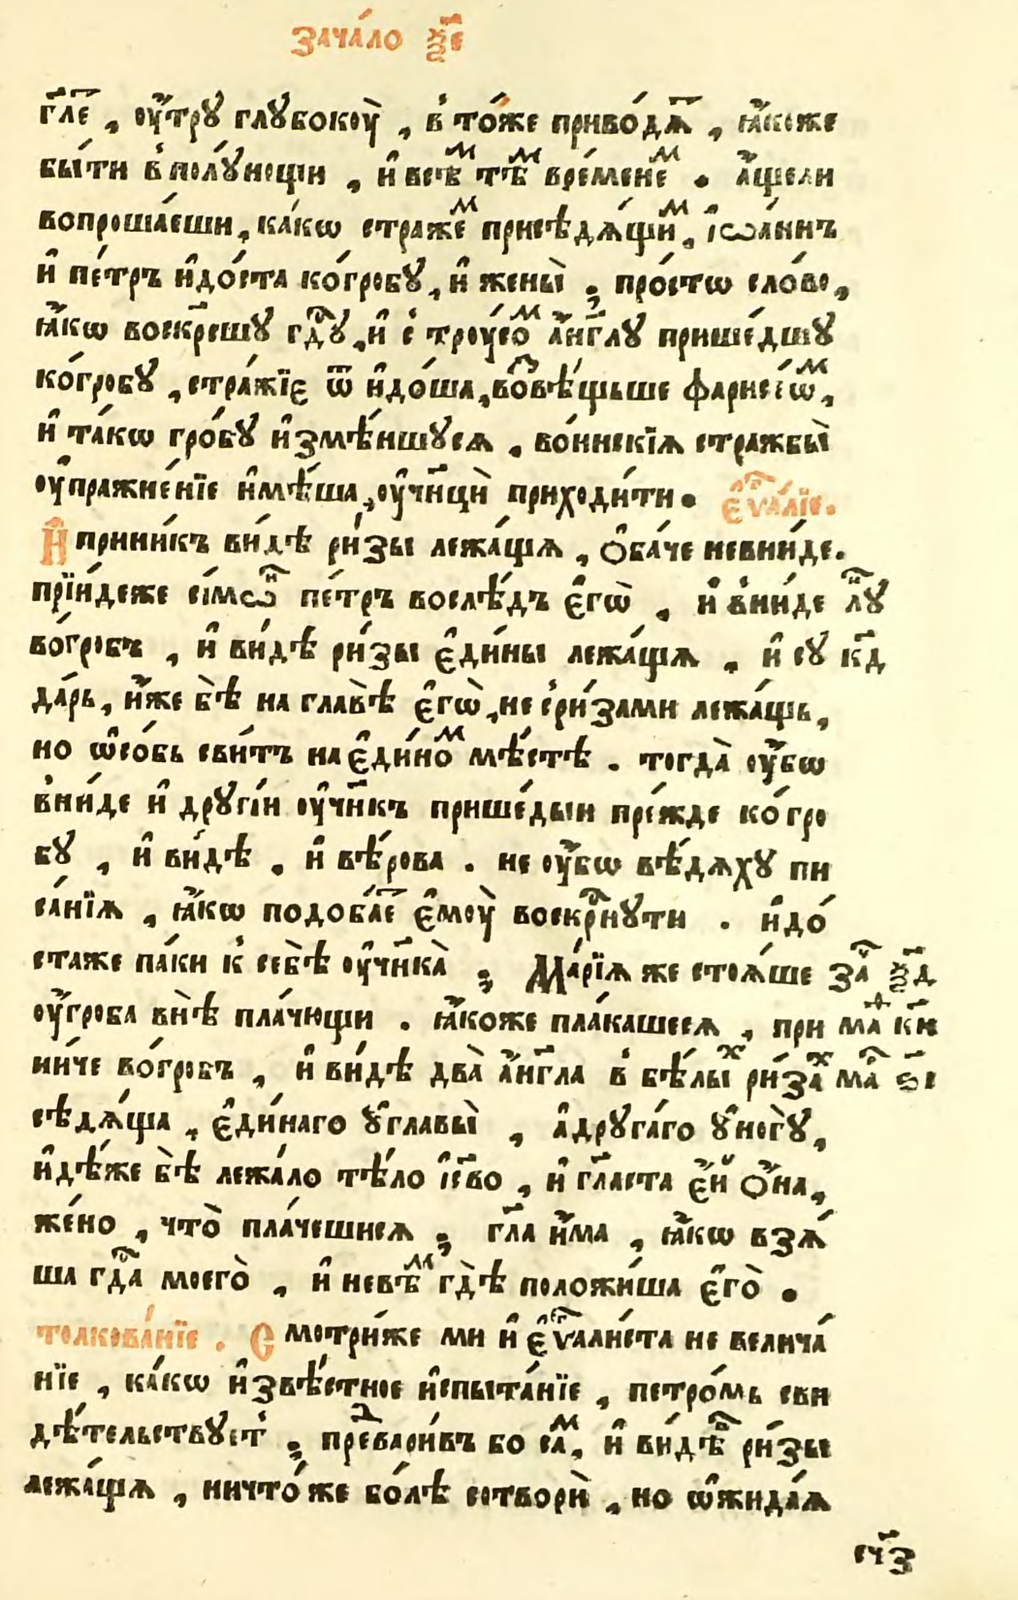 зача́ло ѯ҃є
гл҃є , оу҆́трꙋ глꙋбокоу̀ , в то́же приво́дѧт , ꙗ҆́коже
бы́ти в полꙋ́нощи , и҆ всѣм тѣм вре́менем . а҆́щели
вопроша́еши , ка́кѡ стражем присѣдѧ́щим , і҆ѡа́ннъ
и҆ пе́тръ и҆до́ста ко́гробꙋ , и҆ жены̀ ; про́стѡ сло́во ,
ꙗ҆́кѡ воскр҃сшꙋ гдⷭ҇ꙋ , и҆ с троу́сом а҆́нг҃лꙋ прише́дшꙋ
ко́гробꙋ , стра́жїе ѿ и҆до́ша , во́звѣщьше фарисе́ѡм ,
и҆ та́кѡ гро́бꙋ и҆змѣ́ншꙋсѧ , во́инскїѧ стражбы̀
оу҆пражне́нїе и҆мѣ́ша , оу҆ч҃нцы̀ приходи́ти . є҆ѵⷢ҇а́лїе .
И҆ прини́къ ви́дѣ ри́зы лежа́щѧ , ѻ҆ба́че невни́де .
прїи́деже сі́мѡн пе́тръ вослѣ́дъ є҆гѡ̀ , и҆ вни́де
во́гробъ , и҆ ви́дѣ ри́зы є҆ди́ны лежа́щѧ , и҆ сꙋ
да́рь , и҆́же бѣ̀ на главѣ̀ є҆гѡ̀ , не с ри́зами лежа́щь ,
но ѡ҆со́бь сви́тъ на є҆ди́ном мѣ́стѣ . тогда̀ оу҆́бѡ
вни́де и҆ дрꙋгі́и оу҆ч҃нкъ прише́дыи пре́жде ко́гро
бꙋ , и҆ ви́дѣ , и҆ вѣ́рова . не оу҆́бѡ вѣ́дѧхꙋ пи
са́нїѧ , ꙗ҆́кѡ подоба́ет є҆моу̀ воскрⷭ҇нꙋти . и҆до́
стаже па́ки к себѣ̀ оу҆ч҃нка̀ ; Ма́рїѧ же стоѧ́ше за҃ч ѯ҃д
оу҆́гроба внѣ̀ пла́чющи . ꙗ҆́коже пла́кашесѧ , при
ни́че во́гробъ , и҆ ви́дѣ два̀ а҆́нг҃ла в бѣ́лых ри́зах
сѣдѧ́ща , є҆ди́наго ꙋ҆главы̀ , а҆дрꙋга́го ꙋ҆ногꙋ̀ ,
и҆дѣ́же бѣ̀ лежа́ло тѣ́ло і҆с҃во , и҆ гл҃аста є҆́й ѻ҆́на ,
же́но , что̀ пла́чешисѧ ; гл҃а и҆́ма , ꙗ҆́кѡ взѧ́
ша гдⷭ҇а моего̀ , и҆ невѣм гдѣ̀ положи́ша є҆го̀ .
толкова́нїе . Смотри́же ми и҆ є҆ѵⷢ҇алиста не велича́
нїе , ка́кѡ и҆звѣ́стное и҆спыта́нїе , петро́мь сви
дѣ́тельствꙋет ; предвари́въ бо сам , и҆ ви́дѣв ри́зы
лежа́щѧ , ничто́же бо́лѣ сотворѝ , но ѡ҆жида́ѧ
сч҃з